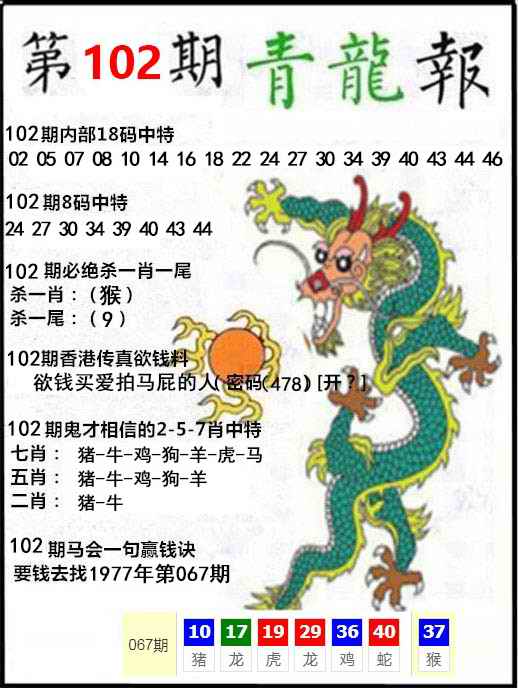 第102期 青龍報
102期内部18码中特
02 05 07 08 10 14 16 18 22 24 27 30 34 39 40 43 44 46
102期8码中特
24 27 30 34 39 40 43 44
102期必绝杀一肖一尾
杀一肖：（猴）
杀一尾：（9）
102期香港传真欲钱料
欲钱买爱拍马屁的人(密码(478) [开？]
102期鬼才相信的2-5-7肖中特
七肖： 猪-牛-鸡-狗-羊-虎-马
五肖： 猪-牛-鸡-狗-羊
二肖： 猪-牛
102期马会一句赢钱诀
要钱去找1977年第067期
067期 10 17 19 29 36 40 37
猪 龙 虎 龙 鸡 蛇 猴